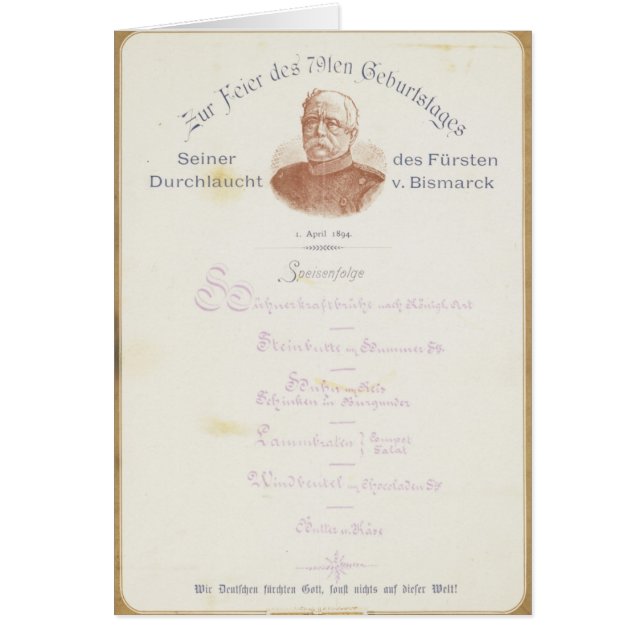 Zur Feier des 79ten Geburtstages
Seiner Durchlaucht des Fürsten v. Bismarck
1. April 1894.
Speisenfolge
Hühnerkraftbrühe nach Königl. Art
Steinbutte m Hummer Sß
Huhn m Reis
Schinken in Burgunder
Lammbraten { Compot
Salat
Windbeutel m Chocoladen Sß
Butter u. Käse
Wir Deutschen fürchten Gott, sonst nichts auf dieser Welt!